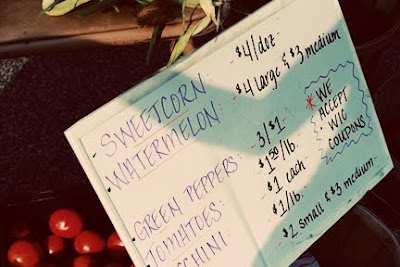 SWEETCORN $4/doz
WATERMELON: $4 large & $3 medium
GREEN PEPPERS: 3/$1
TOMATOES: $1.50/lb.
CCHINI $1 each
$1/lb.
$2 small & $3 medium
* WE
ACCEPT
WIC
COUPONS